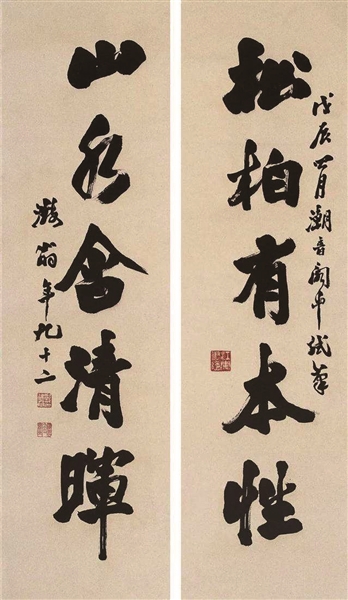 松柏有本性
戊辰四月潮音閣中試筆
山水含清暉
翁年九十二